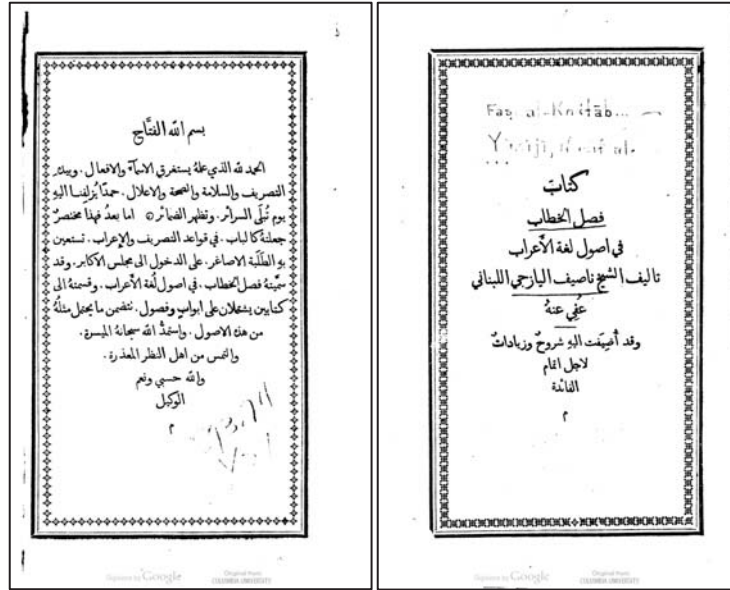 كتاب
فصل الخطاب
في اصول لغة الأعراب
تاليف الشيخ ناصيف اليازجي اللبناني
عُفِي عنهُ
وقد أُضِيفَت اليهِ شروحٌ وزياداتٌ
لاجل اتمام
الفائدة
م
Digitized by Google
Original from
COLUMBIA UNIVERSITY
بسم الله الفتَّاح
الحمد لله الذي علمهُ يستغرق الاسمآءَ والافعال. وبيدهِ
التصريف والسلامة والصحة والاعلال. حمدًا يُزلِفنا اليهِ
يوم تُبلَى السرائر. وتظهر الضمائر ۞ اما بعدُ فهذا مختصرٌ
جعلتهُ كالباب. في قواعد التصريف والإعراب. تستعين
بهِ الطَلَبة الاصاغر. على الدخول الى مجلس الاكابر. وقد
سمَّيتهُ فصل الخطاب. في اصول لُغة الأَعراب. وقسمتهُ الى
كتابين يشتملان على ابوابٍ وفصول. تتضمن ما يحتمل مثلُهُ
من هذه الاصول. واستمدُّ الله سبحانهُ الميسرة.
والتمس من اهل النظر المعذرة.
والله حسبي ونعم
الوكيل
م
Digitized by Google
Original from
COLUMBIA UNIVERSITY